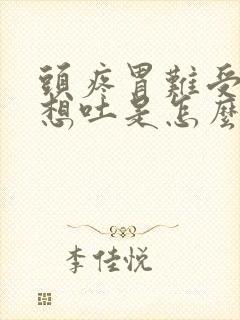 頭疼胃難受
想吐是怎麼
李佳悅